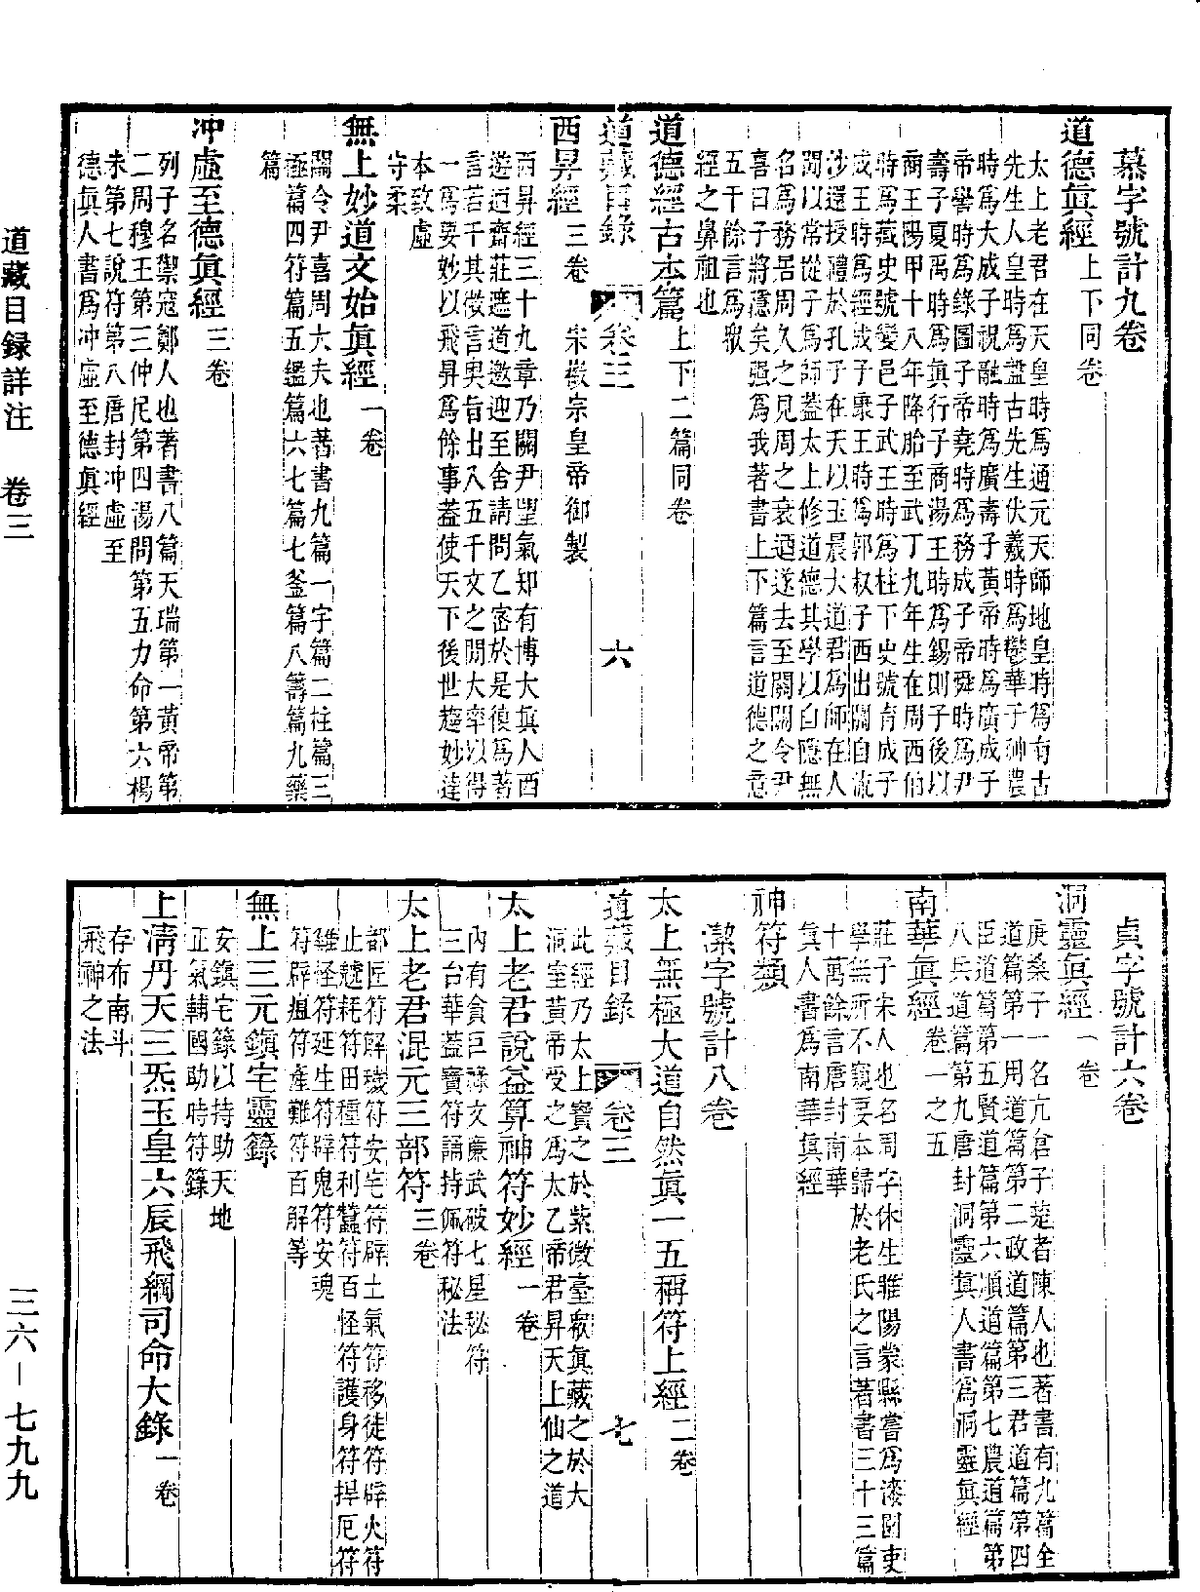 慕字號計九卷
道德眞經上下同卷
太上老君在天皇時爲通元天師地皇時爲有古
先生人皇時爲盤古先生伏羲時爲鬱華子神農
時爲大成子祝融時爲廣壽子黃帝時爲廣成子
帝嚳時爲錄圖子帝堯時爲務成子帝舜時爲尹
壽子夏禹時爲眞行子商湯王時爲錫則子後以
商王陽甲十八年降胎至武丁九年生在周西伯
時爲藏史號變邑子武王時爲柱下史號育成子
成王時爲經成子康王時爲郭叔子西出關自流
沙還授禮於孔子在天以玉晨大道君爲師在人
間以常從子爲師蓋太上修道德其學以自隱無
名爲務居周久之見周之衰迺遂去至關關令尹
喜曰子將隱矣强爲我著書上下篇言道德之意
五千餘言爲
經之鼻祖也
道德經古本篇上下二篇同卷
道藏目錄 卷三 六
西昇經三卷 宋徽宗皇帝御製
西昇經三十九章乃關尹望氣知有博大眞人西
遊迺齋莊遮道邀迎至舍請問乙密於是復爲著
言若干其微言奧旨出入五千文之閒大率以得
一爲要妙以飛昇爲餘事蓋使天下後世趍妙達
本致虛
守柔
無上妙道文始眞經一卷
關令尹喜周大夫也著書九篇一宇篇二柱篇三
極篇四符篇五鑑篇六七篇七釜篇八籌篇九藥
篇
沖虛至德眞經三卷
列子名禦寇鄭人也著書八篇天瑞第一黃帝第
二周穆王第三仲尼第四湯問第五力命第六楊
朱第七說符第八唐封沖虛至
德眞人書爲沖虛至德眞經
道藏目録詳注 卷三
貞字號計六卷
洞靈眞經一卷
庚桑子一名亢倉子楚者陳人也著書有九篇全
道篇第一周道篇第二政道篇第三君道篇第四
臣道篇第五賢道篇第六順道篇第七農道篇第
八兵道篇第九唐封洞靈眞人書爲洞靈眞經
南華眞經卷一之五
莊子宋人也名周字休生雎陽蒙縣嘗爲漆園吏
學無所不窺要本歸於老氏之言著書三十三篇
十萬餘言唐封南華
眞人書爲南華眞經
神符類
潔字號計八卷
太上無極大道自然眞一五稱符上經二卷
道藏目錄 卷三 七
此經乃太上寶之於紫微臺衆眞藏之於大
洞室黃帝受之爲太乙帝君昇天上仙之道
太上老君說益算神符妙經一卷
內有貪巨祿文廉武破七星秘符
三台華蓋寶符誦持佩符秘法
太上老君混元三部符三卷
都匠符解穢符安宅符辟土氣符移徒符辟火符
止耗符田種符利蠶符百怪符護身符捍厄符
雞怪符延生符辟鬼符安魂
符辟瘟符產難符百解等
無上三元鎮宅靈籙
安鎮宅籙以持助天地
正氣輔國助時符籙
上清丹天三炁玉皇六辰飛綱司命大籙一卷
存布南斗
飛神之法
三六—七九九